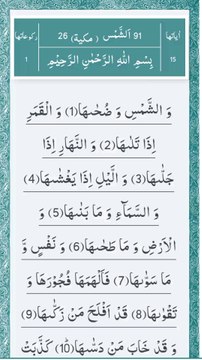 آیاتها 91 اَلشَّمْسِ ( مکیة) 26 رکوعاتها
15 بِسْمِ اللّٰهِ الرَّحْمٰنِ الرَّحِیْمِ 1
وَ الشَّمْسِ وَ ضُحٰىهَا(1) وَ الْقَمَرِ
اِذَا تَلٰىهَا(2) وَ النَّهَارِ اِذَا
جَلّٰىهَا(3) وَ الَّیْلِ اِذَا یَغْشٰىهَا(4)
وَ السَّمَآءِ وَ مَا بَنٰىهَا(5) وَ
الْاَرْضِ وَ مَا طَحٰىهَا(6) وَ نَفْسٍ وَّ
مَا سَوّٰىهَا(7) فَاَلْهَمَهَا فُجُوْرَهَا وَ
تَقْوٰىهَا(8) قَدْ اَفْلَحَ مَنْ زَكّٰىهَا(9)
وَ قَدْ خَابَ مَنْ دَسّٰىهَا(10) كَذَّبَتْ